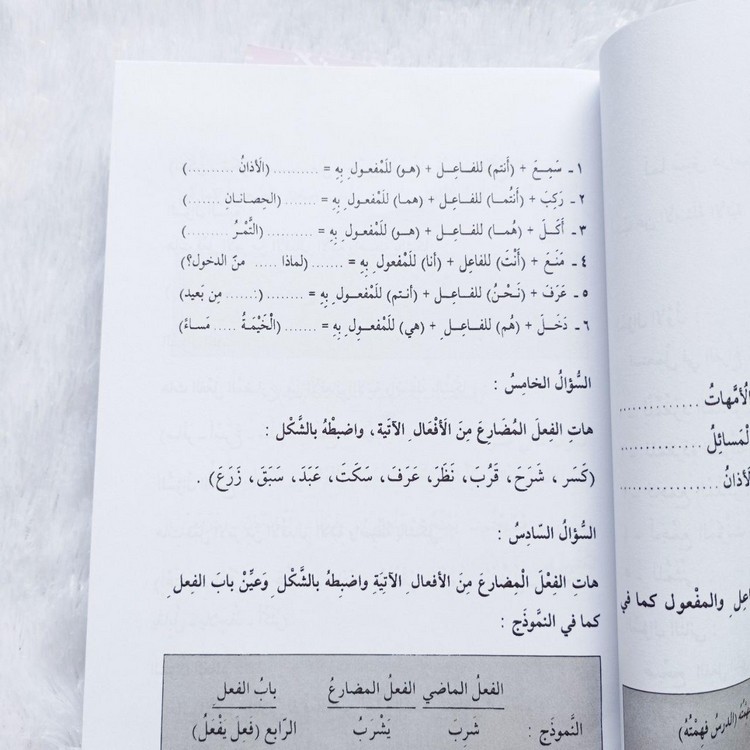 ١ ـ سَمِعَ + (أَنتم) للفاعِـل + (هو) للَمْفعول ِ بِهِ = .......... (الَأذانُ ..........)
٢ ـ رَكِبَ + (أَنْتُما) للفاعِـل + (هما) للَمْفعول ِ بِهِ = ....... (الحِصانـانِ .......)
٣ ـ أَكَـلَ + (هُما) للفاعِـل + (هـو) للَمْفعول ِ بِهِ = .......... (التَّمْـرُ ..........)
٤ ـ مَنَـعَ + (أَنْتَ) للفاعِل + (أنا) للَمْفعول ِ بِهِ = ....... (لماذا ..... منَ الدخول؟)
٥ ـ عَرَفَ + (نَـحْـنُ) للفاعِـل + (أنـتم) للَمْفعـول ِ بِهِ = ........ (....... مِن بَعيد)
٦ ـ دَخَـلَ + (هُم) للفاعِـل ِ + (هي) للَمْفعـول ِ بِهِ = ....... (الْخَيْمَـةُ ..... مَساءً)
السُّؤالُ الخامِسُ :
هاتِ الفِعلَ المُضارِعَ مِنَ الَأفْعال ِ الآتيَة، واضبطْهُ بالشَّكْل :
(كَسَر ، شَرَحَ، قَرُبَ، نَظَرَ، عَرَفَ، سَكَتَ، عَبَدَ، سَبَقَ، زَرَعَ) .
السُّؤالُ السّادِسُ :
هاتِ الفِعْلَ الْمِضارعَ مِنَ الأفعال ِ الآتيَةِ واضبِطهُ بالشَّكْل ِ وَعَيِّنْ بابَ الفِعل ِ
كما في النَّمْوذَج :
الفعلُ الماضي الفعلُ المضارعُ بابُ الفعل
النَّموذَج : شرِبَ يَشْرَبُ الرّابع (فعِلَ يَفْعَلُ)
الُأمَّهاتُ ..............
الْمَسائِلُ ..............
لَأذانُ ..............
اعِل ِ والمفْعول كما في
(الدرسُ فَهِمْتُهُ)